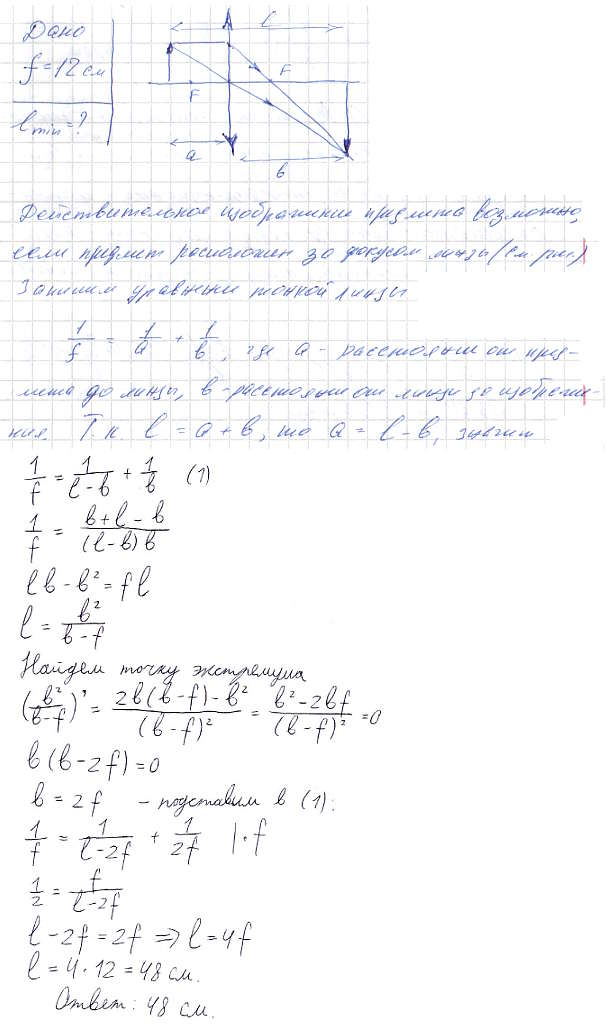 Дано
f = 12 см
l min = ?
l
F
F
a
b
Действительное изображение предмета возможно,
если предмет расположен за фокусом линзы (см. рис.)
Запишем уравнение тонкой линзы
1/f = 1/a + 1/b, где a - расстояние от пред-
мета до линзы, b - расстояние от линзы до изображе-
ния. Т.к. l = a + b, то a = l - b, значит
1/f = 1/(l - b) + 1/b (1)
1/f = (b + l - b)/((l - b) b)
l b - b² = f l
l = b²/(b - f)
Найдем точку экстремума
(b²/(b - f))' = (2b(b - f) - b²)/(b - f)² = (b² - 2bf)/(b - f)² = 0
b (b - 2f) = 0
b = 2f - подставим в (1):
1/f = 1/(l - 2f) + 1/2f | · f
1/2 = f/(l - 2f)
l - 2f = 2f => l = 4f
l = 4 · 12 = 48 см.
Ответ: 48 см.